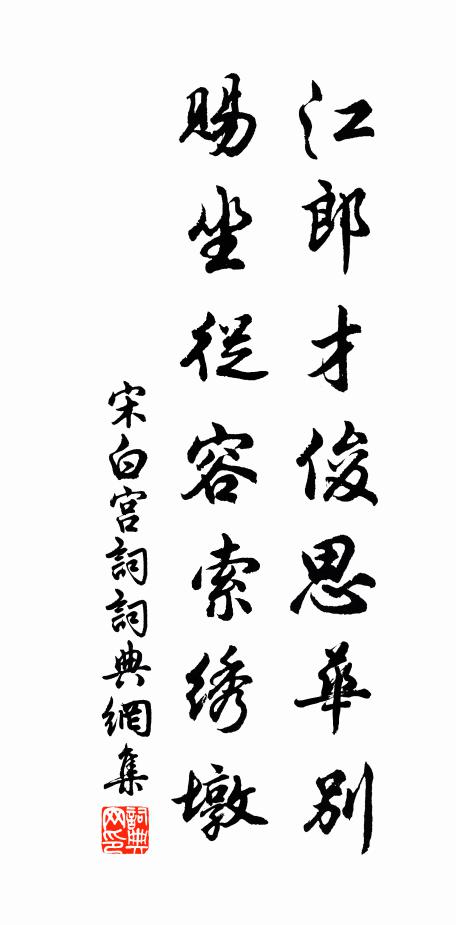 江郎才俊思華別
賜坐從容索绣墩
宋白宫詞詞典網集
詞典网印